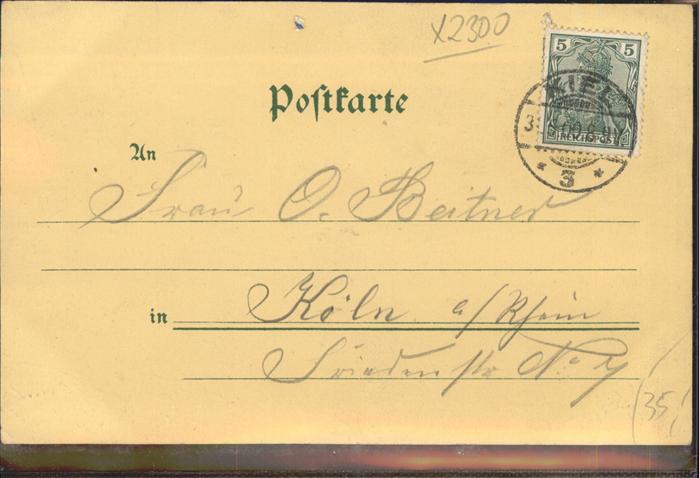 X2300
5 5
REICHSPOST
KIEL
* 3 *
Postkarte
An
Frau O. Beitner
in Köln a/Rhein
Friedenstr No
(35,